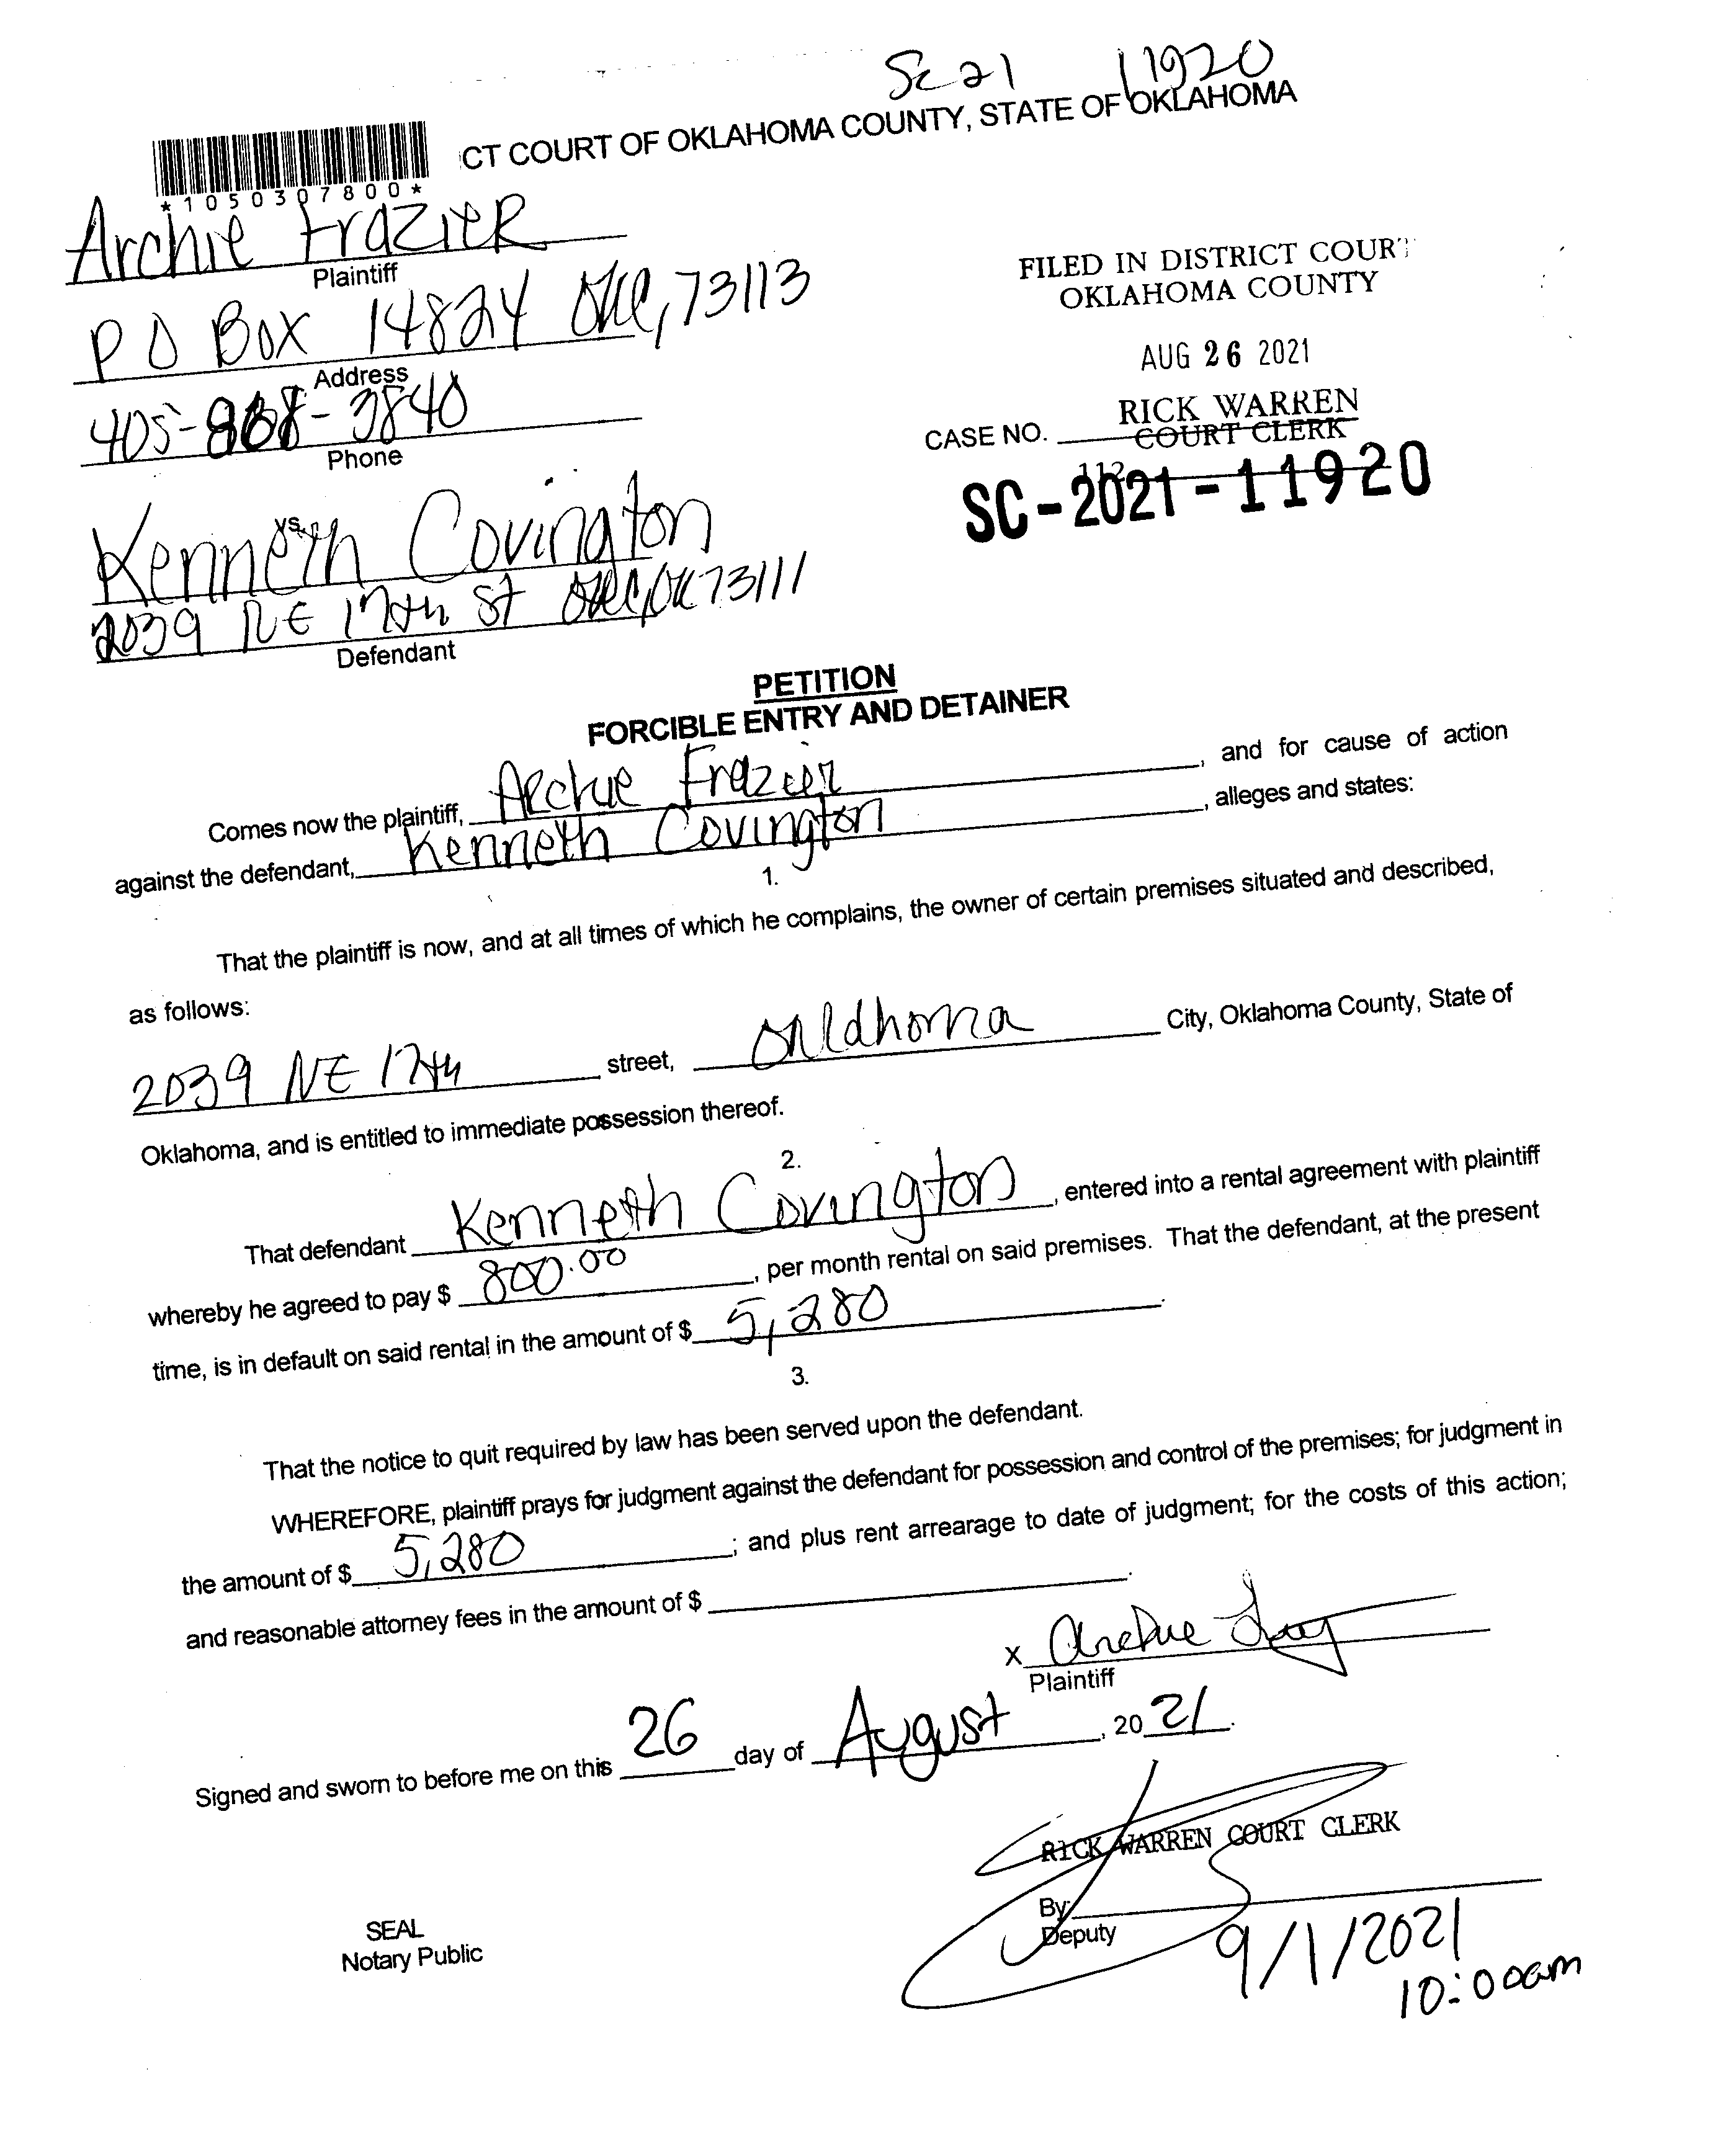 Sc 21 11920
CT COURT OF OKLAHOMA COUNTY, STATE OF OKLAHOMA
*1050307800*
Archie Frazier
Plaintiff
P O Box 14824 OKC, 73113
Address
405- -3840
Phone
FILED IN DISTRICT COURT
OKLAHOMA COUNTY
AUG 26 2021
RICK WARREN
COURT CLERK
CASE NO.
112
SC-2021-11920
vs.
Kenneth Covington
2039 NE 17th St OKC, OK 73111
Defendant
PETITION
FORCIBLE ENTRY AND DETAINER
Comes now the plaintiff, Archie Frazier, and for cause of action
against the defendant, Kenneth Covington, alleges and states:
1.
That the plaintiff is now, and at all times of which he complains, the owner of certain premises situated and described,
as follows:
2039 NE 17th street, Oklahoma City, Oklahoma County, State of
Oklahoma, and is entitled to immediate possession thereof.
2.
That defendant Kenneth Covington, entered into a rental agreement with plaintiff
whereby he agreed to pay $ 800.00, per month rental on said premises. That the defendant, at the present
time, is in default on said rental in the amount of $ 5,280.
3.
That the notice to quit required by law has been served upon the defendant.
WHEREFORE, plaintiff prays for judgment against the defendant for possession and control of the premises; for judgment in
the amount of $ 5,280; and plus rent arrearage to date of judgment; for the costs of this action;
and reasonable attorney fees in the amount of $ .
x Archie
Plaintiff
Signed and sworn to before me on this 26 day of August, 20 21.
RICK WARREN COURT CLERK
By
Deputy
SEAL
Notary Public
9/1/2021
10:00am